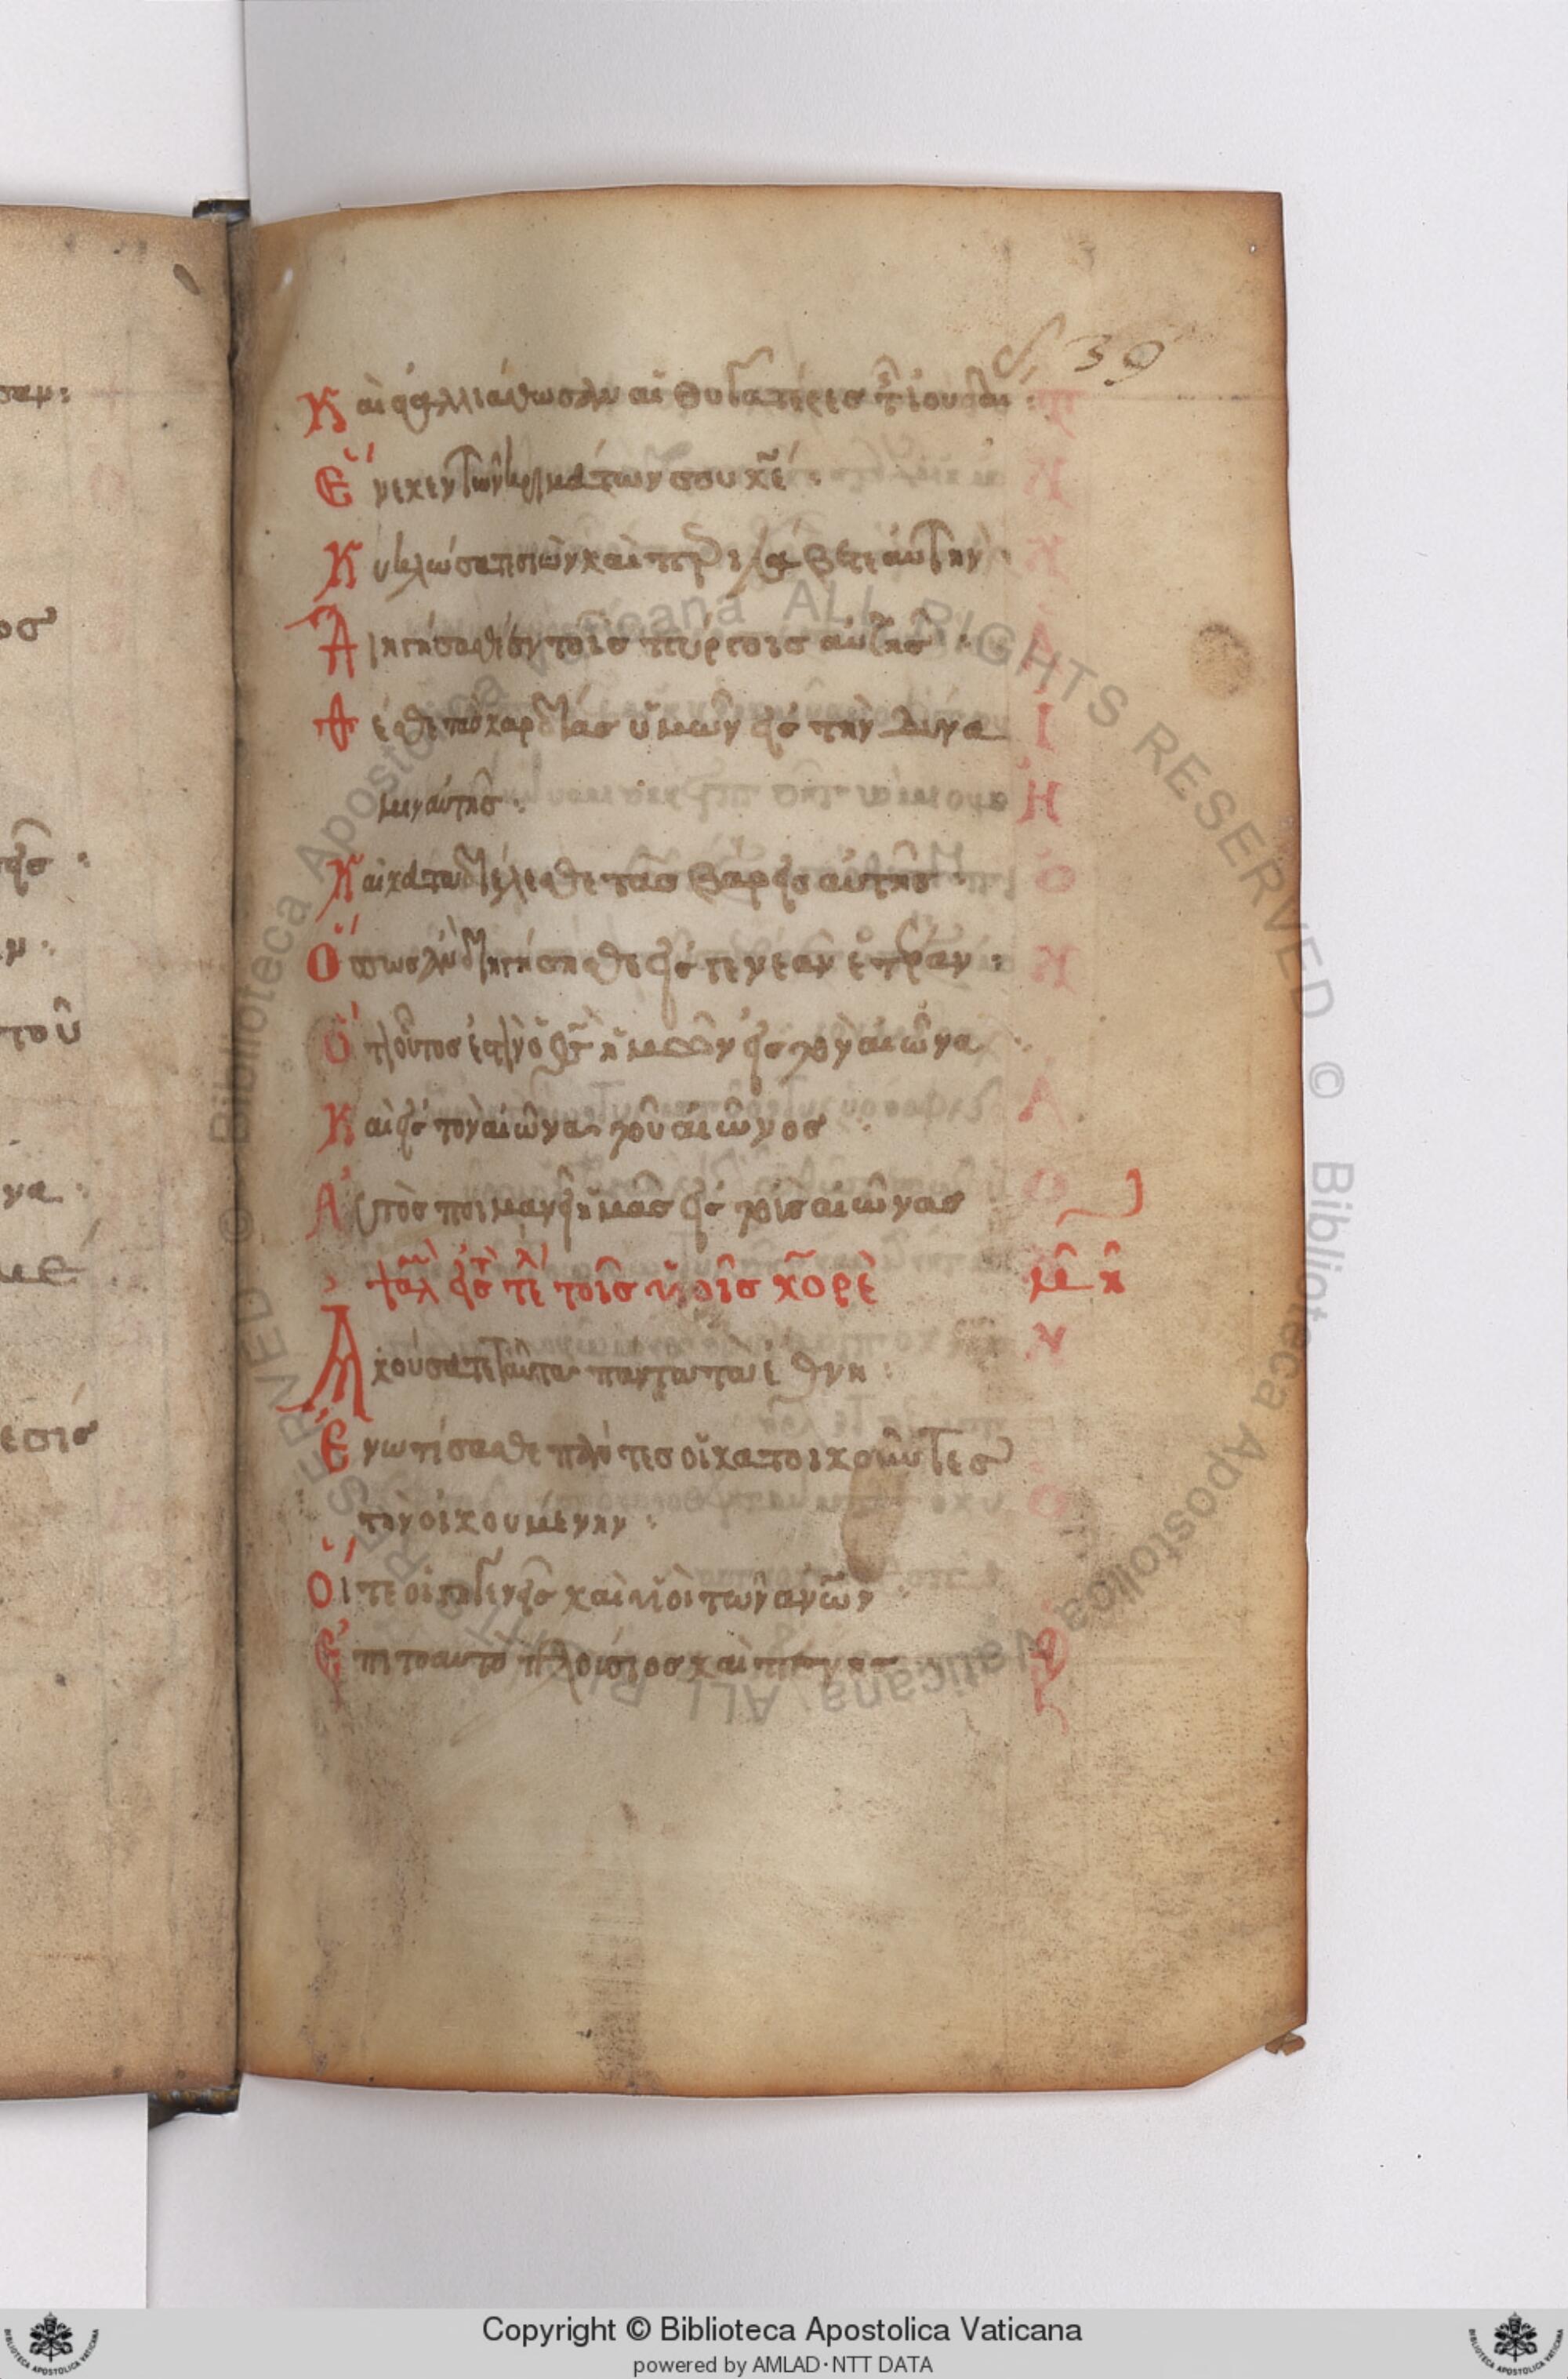 39
Καὶ ἀγαλλιάσθωσαν αἱ θυγατέρες τῆς ἰουδαι :
Ἕνεκεν τῶν κριμάτων σου κε :
Κυκλώσατε σιὼν καὶ περιλάβετε αὐτὴν
Διηγήσασθε ἐν τοῖς πύργοις αὐτῆς :
θέσθε τὰς καρδίας ὑμῶν εἰς τὴν δύνα
μιν αὐτῆς :
Καὶ καταδιέλεσθε τὰς βάρεις αὐτῆς
Ὅπως ἂν διηγήσησθε εἰς γενεὰν ἑτέραν :
Ὅτι οὗτος ἐστὶν ὁ θς ἡμῶν εἰς τὸν αἰῶνα
Καὶ εἰς τὸν αἰῶνα τοῦ αἰῶνος
Αὐτὸς ποιμανεῖ ἡμᾶς εἰς τοὺς αἰῶνας
ψαλ εἰς τὸ τελ τοῖς υἱοῖς κορὲ μη
Ἀκούσατε ταῦτα πάντα τὰ ἔθνη :
Ἐνωτίσασθε πάντες οἱ κατοικοῦντες
τὴν οἰκουμένην :
Οἵ τε γηγενεῖς καὶ υἱοὶ τῶν ανων
Ἐπιτοαυτο πλούσιος καὶ πένης
Copyright © Biblioteca Apostolica Vaticana
powered by AMLAD·NTT DATA